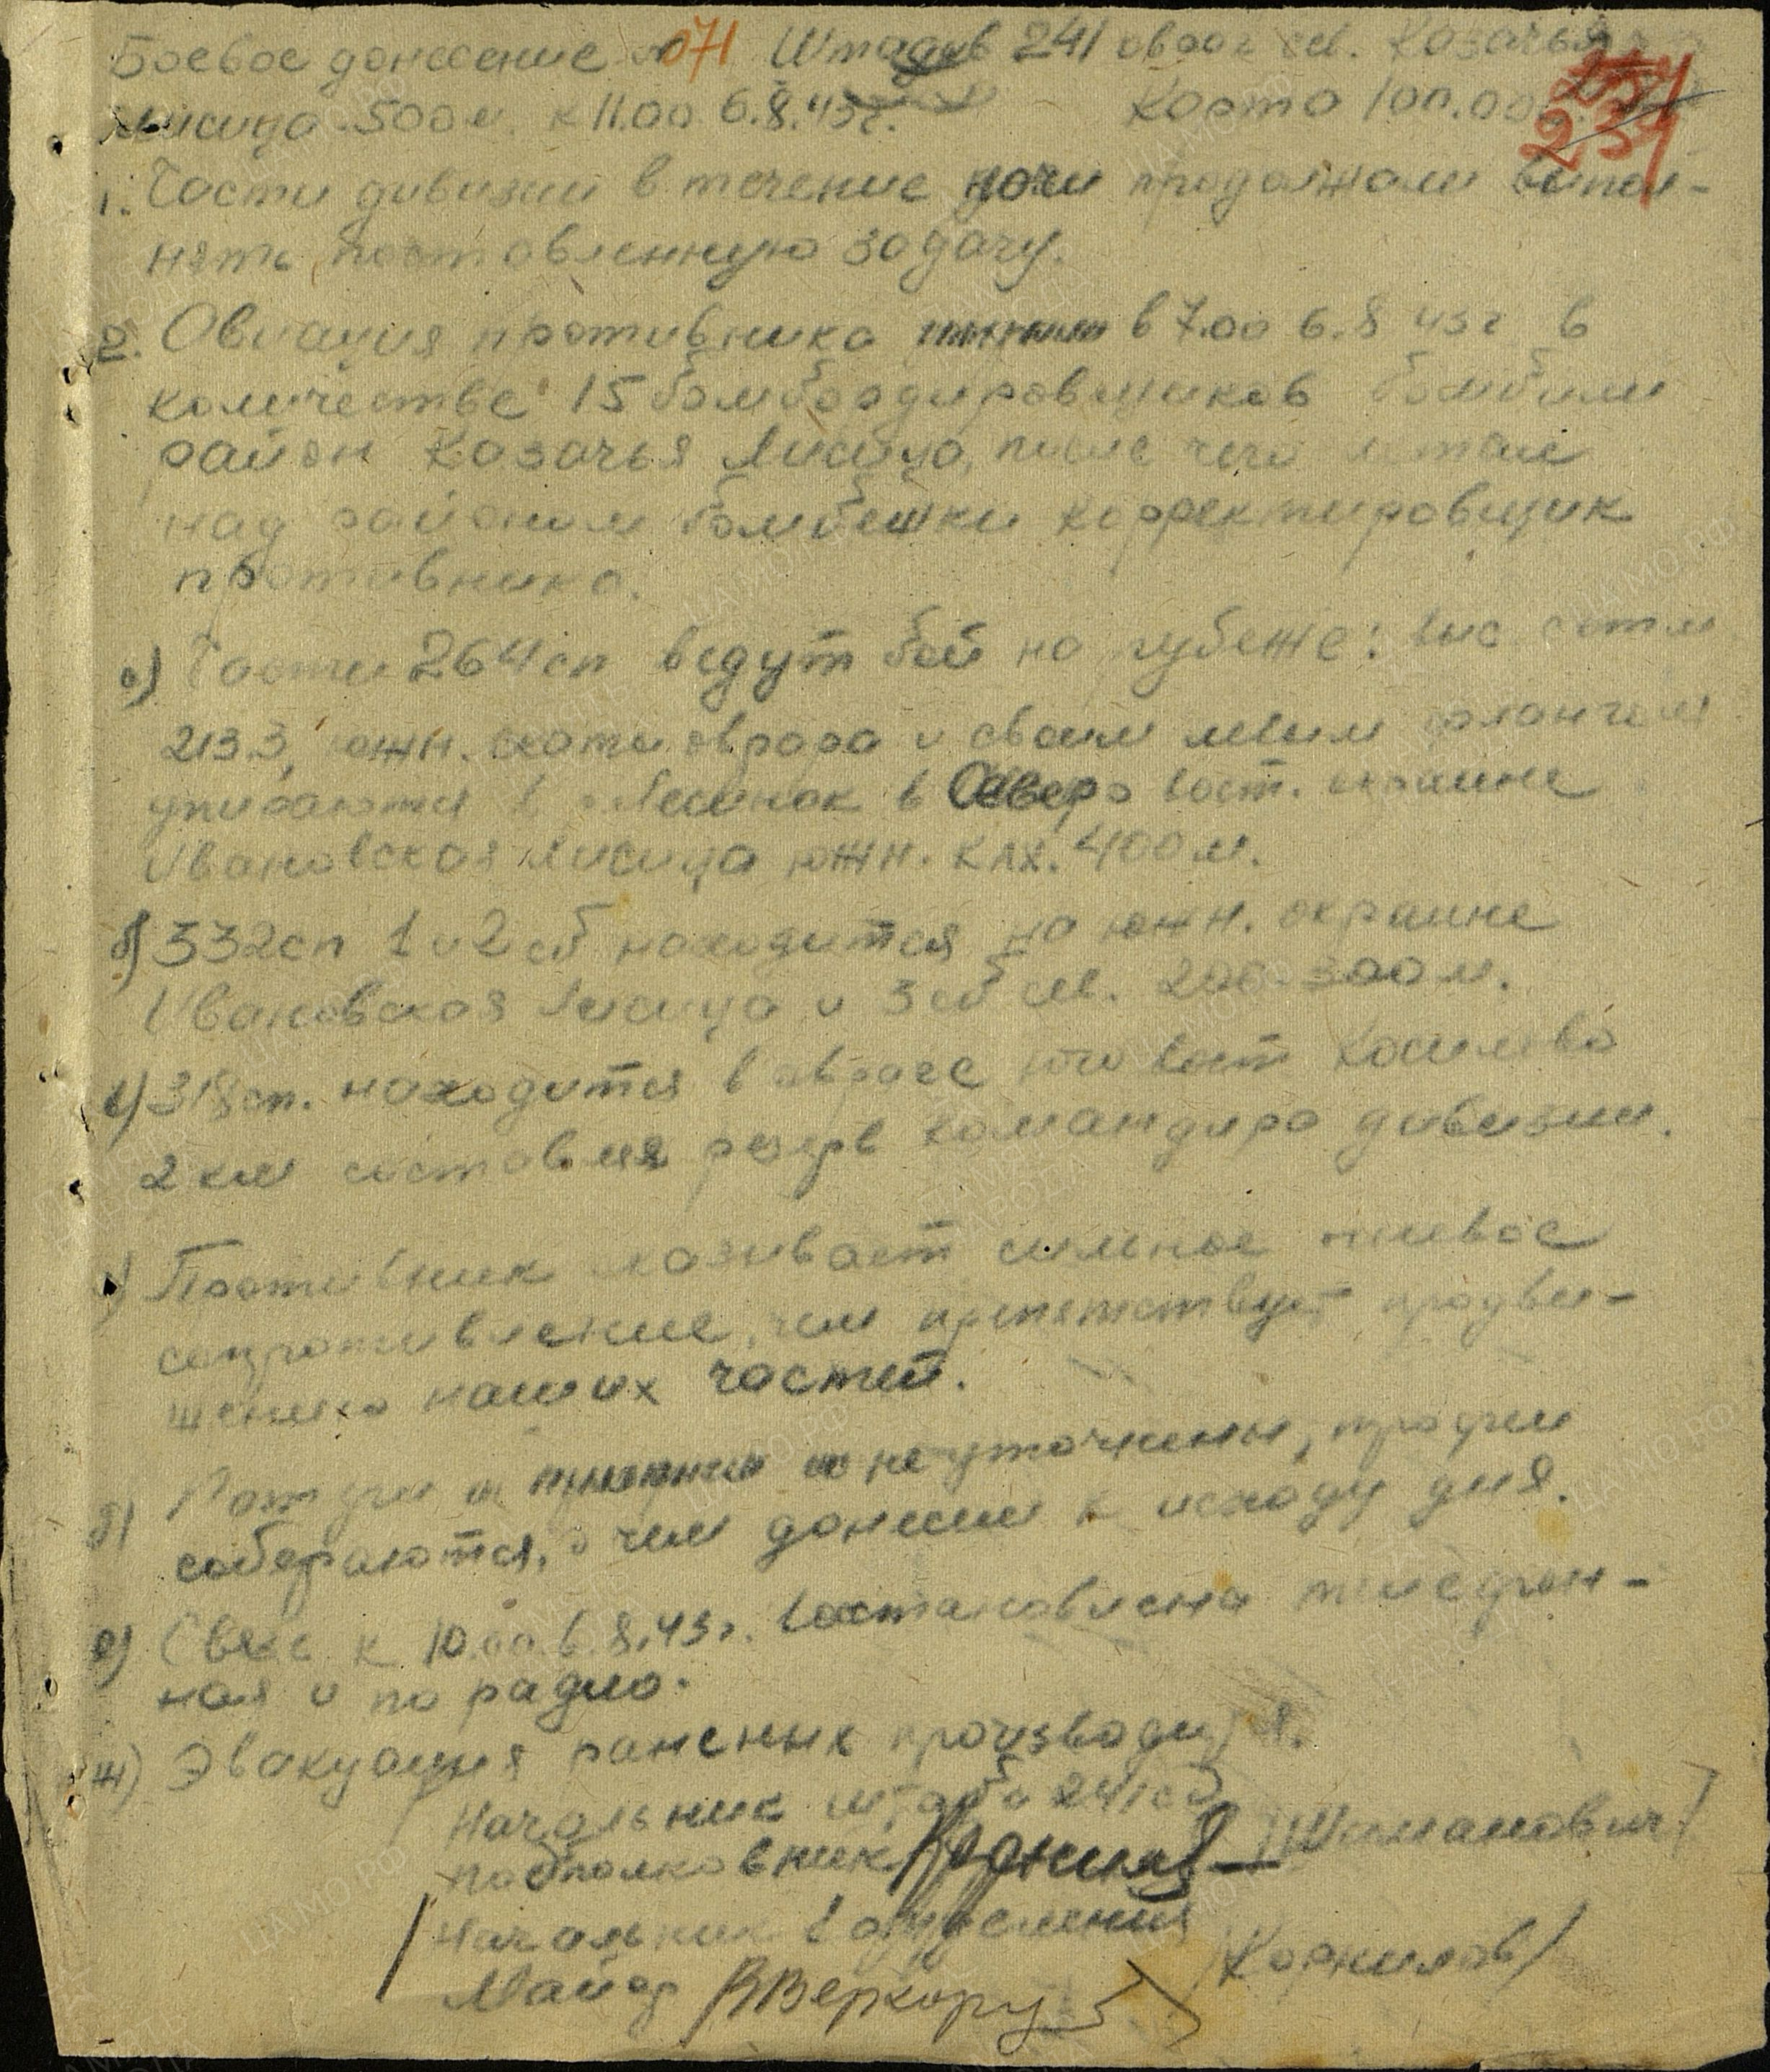 Боевое донесение №071 Штадив 241 овраг сев. Казачья
Лисица 500м. к 11.00 6.8.43г. Карта 100.000
234
1. Части дивизии в течение ночи продолжали выпол-
нять поставленную задачу.
2. Авиация противника в 7.00 6.8 43г в
количестве 15 бомбардировщиков бомбили
район Казачья Лисица, после чего летал
над районом бомбежки корректировщик
противника.
а) Части 264 сп ведут бой на рубеже: выс с отм
213.3, южн. скаты оврага и своим левым флангом
упираются в Лесинок в Северо вост. окраине
Ивановская Лисица южн. клх. 400 м.
б) 332 сп 1 и 2 сб находится на южн. окраине
Ивановская Лисица и 3 сб сев. 200-300 м.
в) 318 сп. находится в овраге юго вост Косилово
2 км составляя резерв командира дивизии.
г) Противник оказывает сильное огневое
сопротивление, чем препятствует продви-
жению наших частей.
д) Потери не уточнены, трофеи
собираются, о чем донесем к исходу дня.
е) Связь к 10.00 6.8.43г. восстановлена телефон-
ная и по радио.
ж) Эвакуация раненых производится.
Начальник штаба 241 сд
подполковник /Шиманович/
Начальник 1 отделения
Майор /Корнилов/